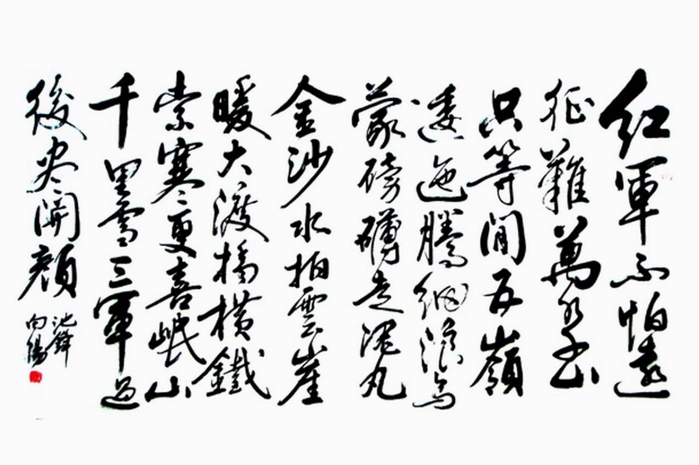 紅軍不怕遠
征難萬水千山
只等閒五嶺
逶迤騰細浪烏
蒙磅礴走泥丸
金沙水拍雲崖
暖大渡橋橫鐵
索寒更喜岷山
千里雪三軍過
後盡開顏
池鋒
向陽